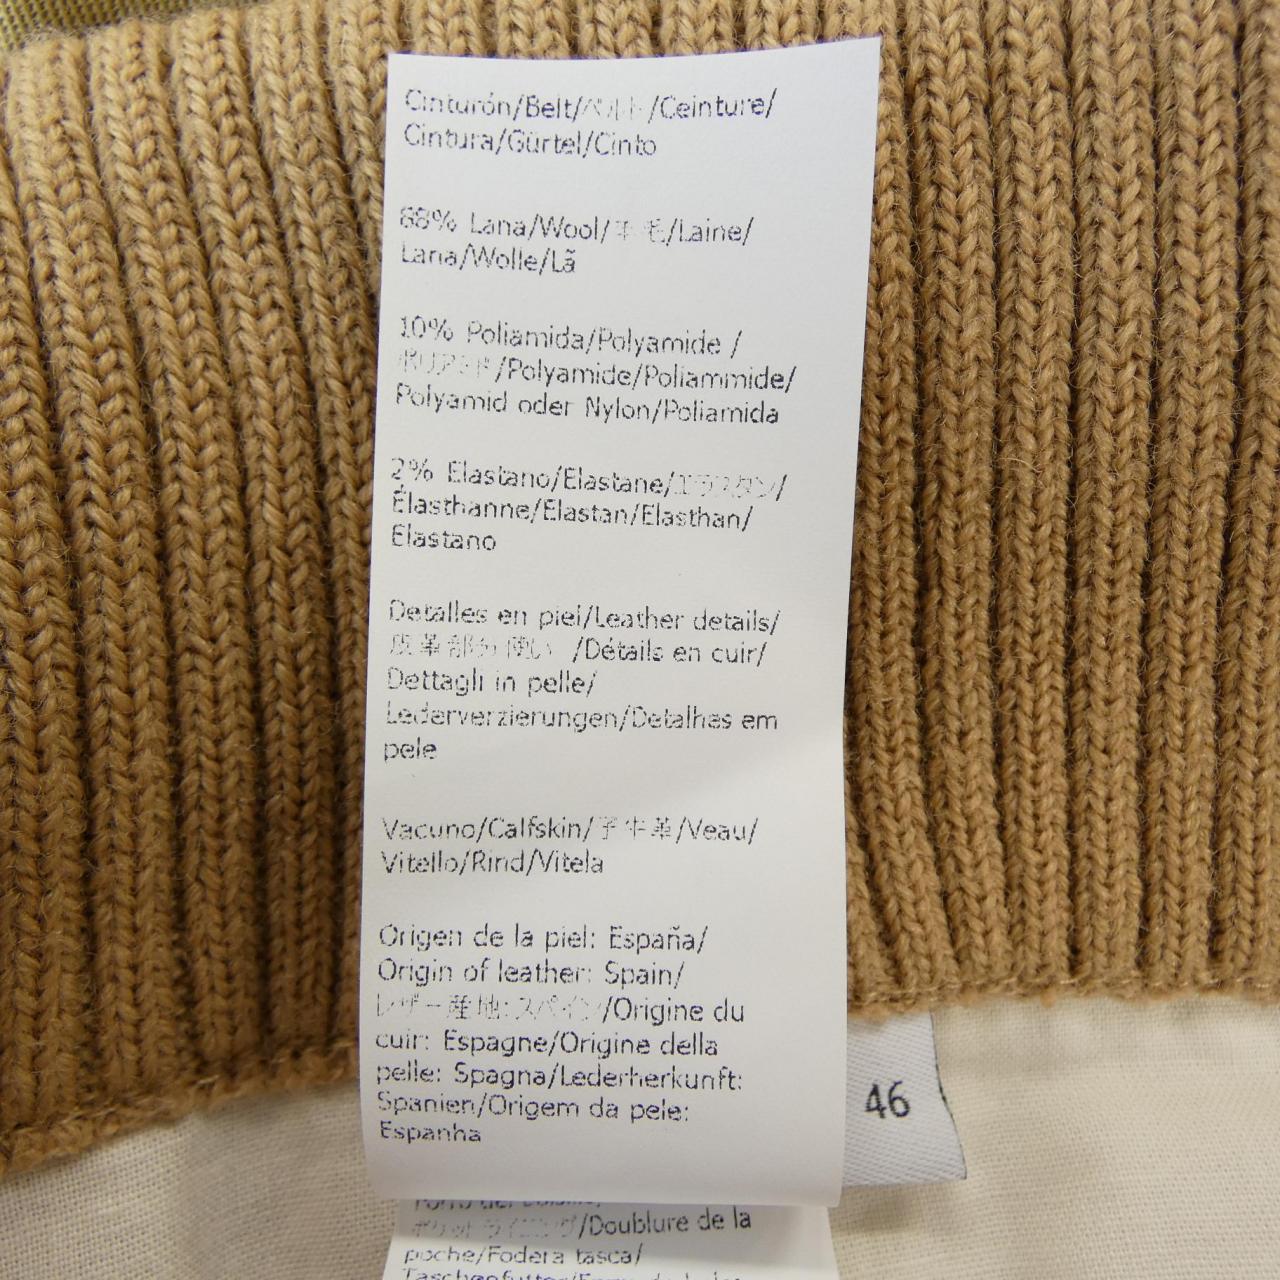 Cinturón/Belt/ベルト/Ceinture/
Cintura/Gürtel/Cinto
88% Lana/Wool/羊毛/Laine/
Lana/Wolle/Lã
10% Poliamida/Polyamide /
ポリアミド/Polyamide/Poliammide/
Polyamid oder Nylon/Poliamida
2% Elastano/Elastane/エラスタン/
Élasthanne/Elastan/Elasthan/
Elastano
Detalles en piel/Leather details/
皮革部分使い /Détails en cuir/
Dettagli in pelle/
Lederverzierungen/Detalhas em
pele
Vacuno/Calfskin/子牛革/Veau/
Vitello/Rind/Vitela
Origen de la piel: España/
Origin of leather: Spain/
レザー産地: スペイン/Origine du
cuir: Espagne/Origine della
pelle: Spagna/Lederherkunft:
Spanien/Origem da pele:
Espanha
46
ポケットライニング/Doublure de la
poche/Fodera tasca/